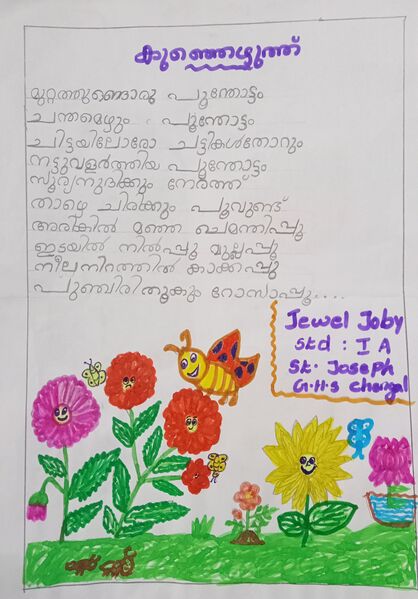 കുഞ്ഞെഴുത്ത്
മുറ്റത്തുണ്ടൊരു പൂന്തോട്ടം
ചന്തമെഴും പൂന്തോട്ടം
ചിട്ടയിലോരോ ചട്ടികൾതോറും
നട്ടുവളർത്തിയ പൂന്തോട്ടം
സൂര്യനുദിക്കും നേരത്ത്
താഴെ ചിരിക്കും പൂവുണ്ട്
അരികിൽ മഞ്ഞ ചെമന്തിപ്പൂ
ഇടയിൽ നിൽപ്പൂ മുല്ലപ്പൂ
നീലനിറത്തിൽ കാക്കപ്പൂ
പുഞ്ചിരിതൂകും റോസാപ്പൂ....
Jewel Joby
Std : I A
St. Joseph
G.H.S chengal